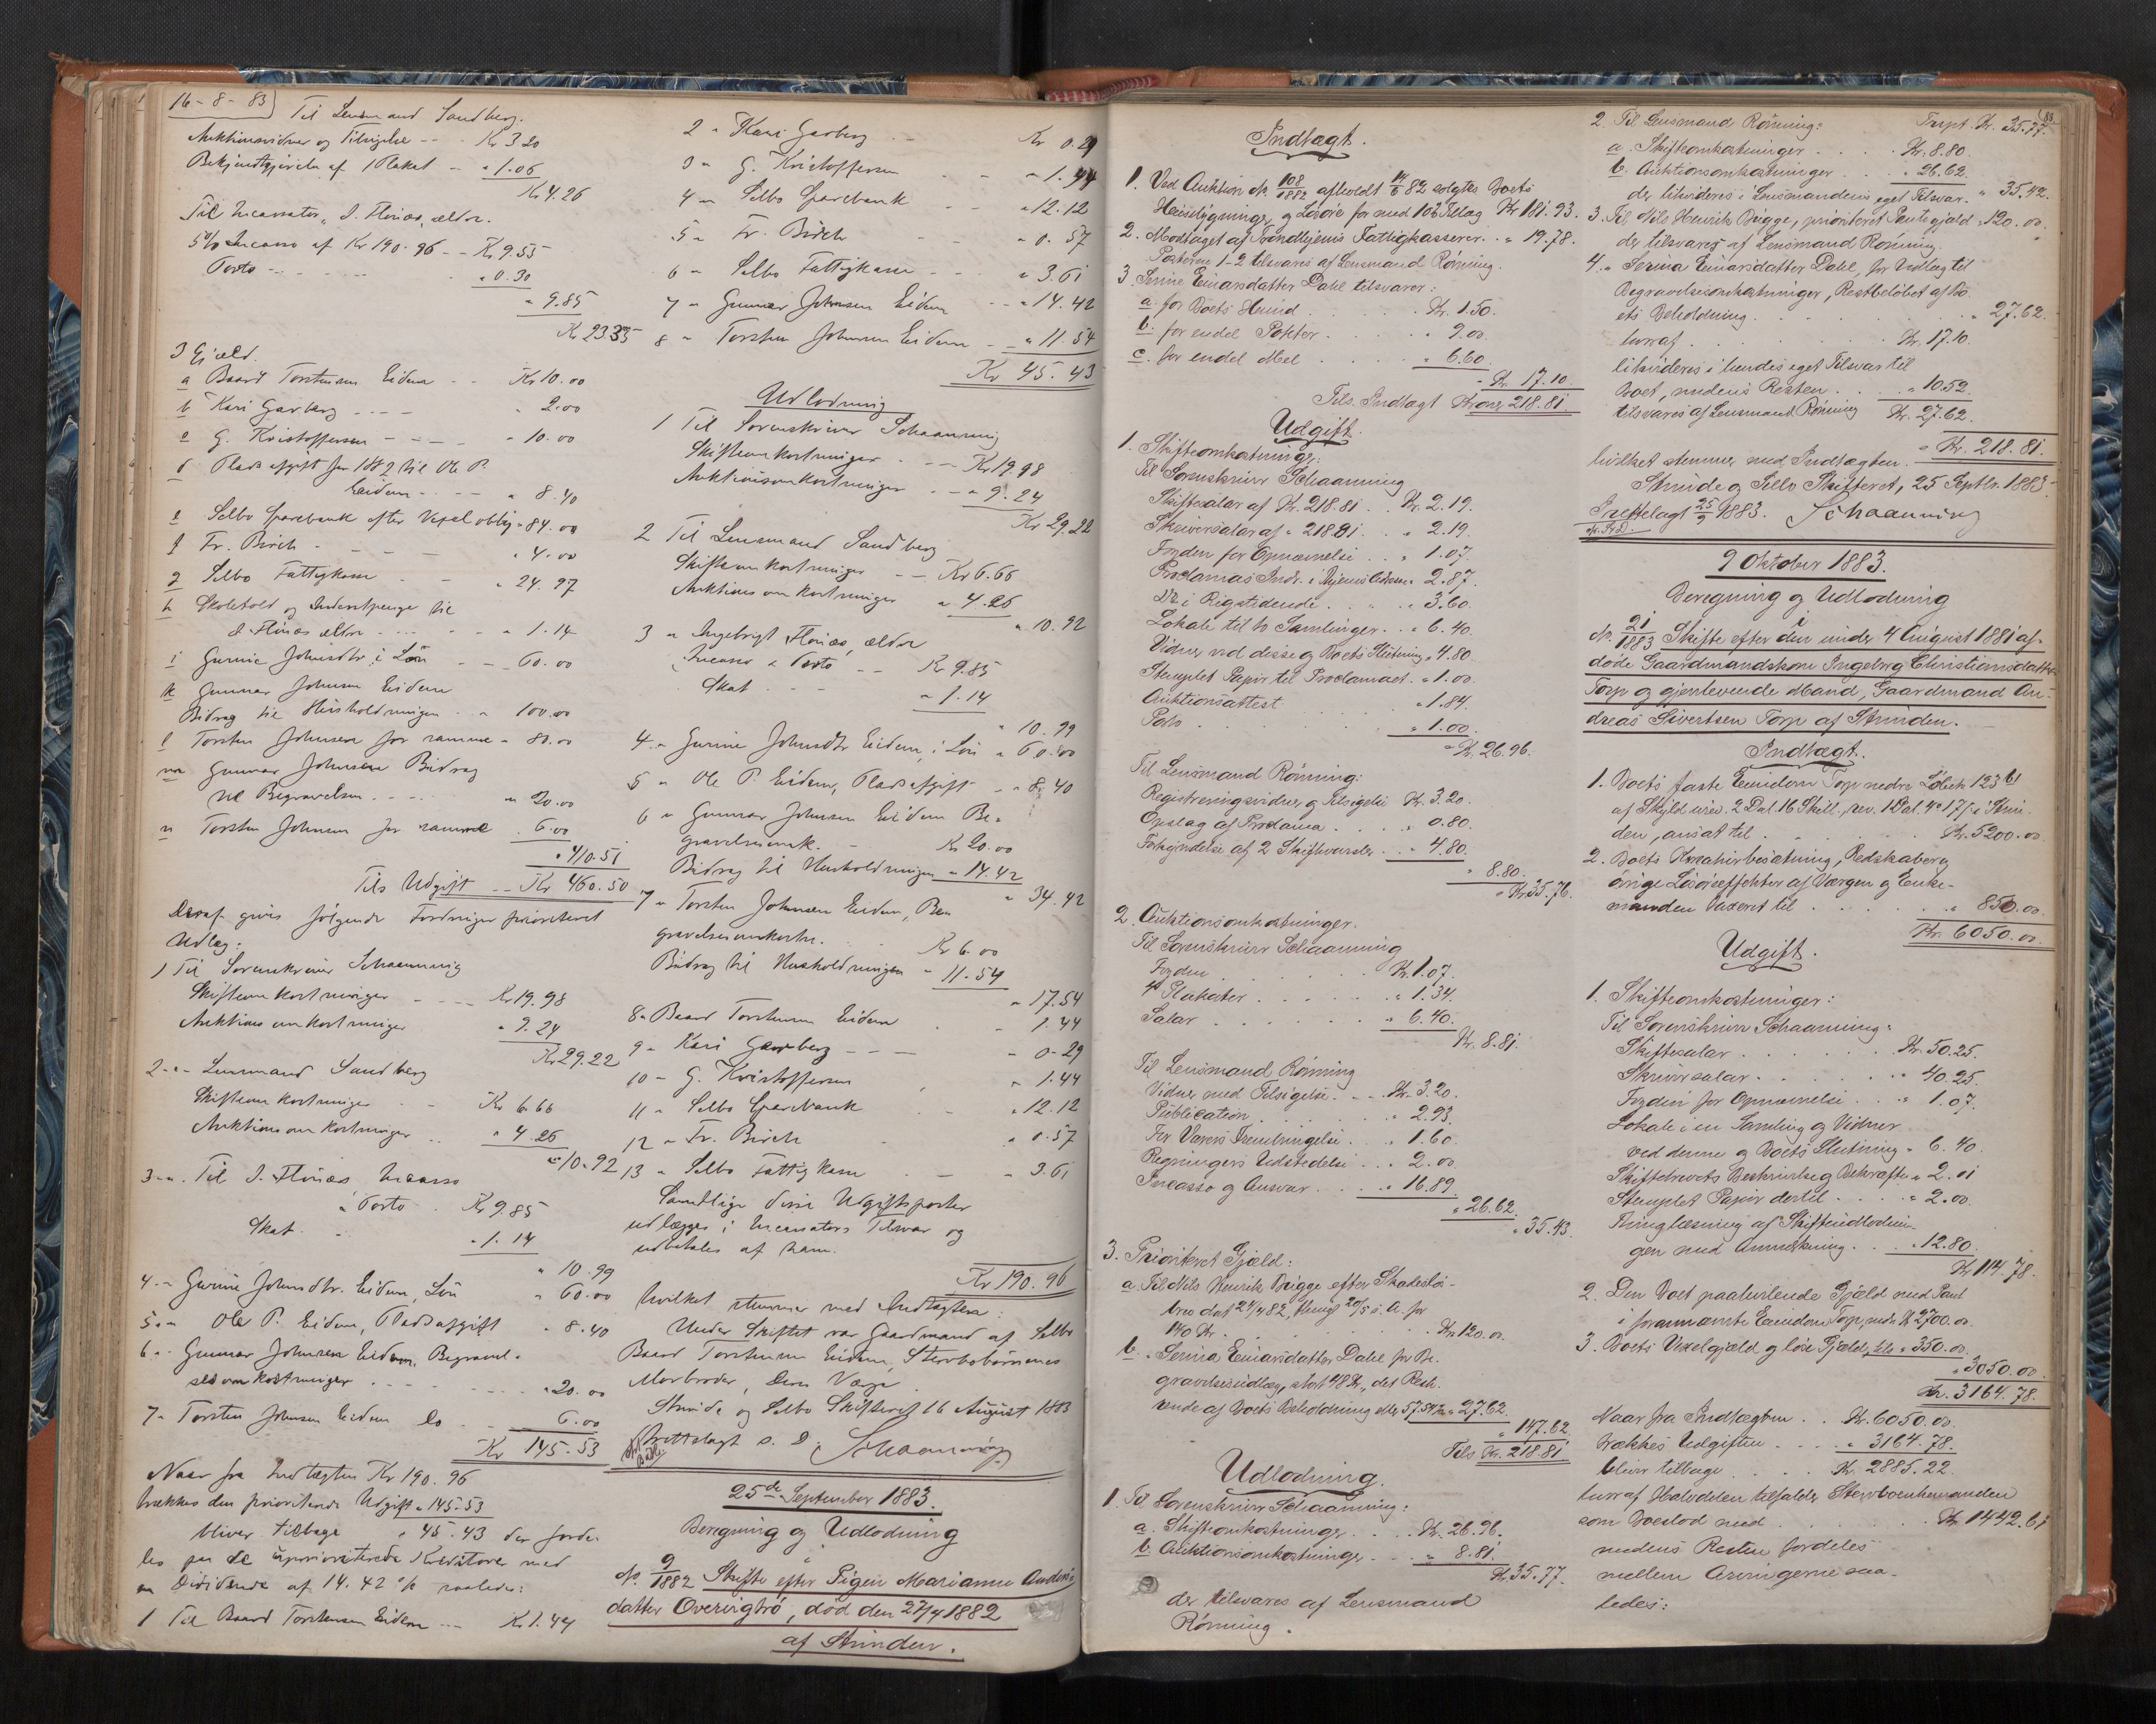 16-8-83
Til Lensmand Sandberg.
Auktionsvidner og Tilsigelse - - Kr 3.20
Bekjendtgjørelse af 1 Plakat - " 1.06
Kr 4.26
Til Incassator, I. Flønæs, ældre.
5% Incasso af Kr 190.96 - - Kr 9.55
Porto - - - - " 0.30
" 9.85
Kr 23 35
3 Gjæld.
a Baard Torstensen Eidem - - Kr 10.00
b Kari Garberg - - - - " 2.00
c G. Kristoffersen - - - - " 10.00
d Pladsafgift for 1882 til Ole P.
Eidem - - - " 8.40
e Selbo Sparebank efter Vexeloblig. " 84.00
f Fr. Birch - - - " 4.00
g Selbo Fattigkasse - - " 24.97
h Skolehold og Underst.penge til
I. Flønæs ældre - - - " 1.14
i Gurine Johnsdtr. i Løn - - 60.00
k Gunnar Johnsen Eidem
Bidrag til Husholdningen - " 100.00
l Torsten Johnsen for samme " 80.00
m Gunnar Johnsen Bidrag
til Begravelsen - - - " 20.00
n Torsten Johnsen for samme . 6.00
" 410.51
Tils Udgift - - Kr 460.50
Deraf gives følgende Fordringer prioriteret
Udlæg:
1 Til Sorenskriver Schaanning
Skifteomkostninger - - - Kr 19.98
Auktionsomkostninger " 9.24
Kr 29.22
2 - " - Lensmand Sandberg
Skifteomkostninger - - Kr 6.66
Auktionsomkostninger - - " 4.26
" 10.92
3 - " . Til I. Flønæs, Incasso
" Porto . Kr 9.85
Skat . . " 1.14
" 10.99
4 - " Gurine Johnsdtr. Eidem, Løn " 60.00
5 - " Ole P. Eidem, Pladsafgift " 8.40
6 - " Gunnar Johnsen Eidem, Begravel-
sesomkostninger - - - - " 20.00
7 - " Torsten Johnsen Eidem do - - 6.00
Kr 145.53
Naar fra Indtægten Kr 190.96
trækkes den prioriterede Udgift " 145.53
bliver tilbage " 45.43 der forde-
les paa de uprioriterede Kreditorer med
en Dividende af 14.42 % saaledes:
1 Til Baard Torstensen Eidem - - Kr 1.44
2 " Kari Garberg - - Kr 0.29
3 " G. Kristoffersen - - " 1.44
4 " Selbo Sparebank - - " 12.12
5 " Fr. Birch - - " 0.57
6 " Selbo Fattigkasse - - " 3.61
7 " Gunnar Johnsen Eidem - - " 14.42
8 " Torsten Johnsen Eidem - - " 11.54
Kr 45.43
Udlodning
1 Til Sorenskriver Schaanning
Skifteomkostninger - - - Kr 19.98
Auktionsomkostninger - - " 9.24
Kr 29.22
2 Til Lensmand Sandberg
Skifteomkostninger - - Kr 6.66
Auktionsomkostninger " 4.26
" 10.92
3 " Ingebrigt Flønæs, ældre
Incasso & Porto - - Kr 9.85
Skat - - - " 1.14
" 10.99
4 " Gurine Johnsdtr Eidem, i Løn " 60.00
5 " Ole P. Eidem, Pladsafgift - " 8.40
6 " Gunnar Johnsen Eidem Be-
gravelsesomk. - Kr 20.00
Bidrag til Husholdningen " 14.42
" 34.42
7 " Torsten Johnsen Eidem, Be-
gravelsesomkostn. . Kr 6.00
Bidrag til Husholdningen " 11.54
" 17.54
8 " Baard Torstensen Eidem . " 1.44
9 " Kari Garberg - - - " 0.29
10 " G. Kristoffersen " 1.44
11 " Selbo Sparebank " 12.12
12 " Fr. Birch . " 0.57
13 " Selbo Fattigkasse - - " 3.61
Samtlige disse Udgiftsposter
udlægges i Incassators Tilsvar og
udbetales af ham.
Kr 190.96
hvilket stemmer med Indtægten:
Under Skiftet var Gaardmand af Selbo
Baard Torstensen Eidem, Sterbobørnenes
Morbroder, deres Værge.
Strinde og Selbo Skifteret 16 August 1883
Fremlagt s. D. Schaanning
25de September 1883.
Beregning og Udlodning
i
No. 9/1882 Skifte efter Pigen Marianne Anders-
datter Overvigtrø, død den 27/4 1882
af Strinden.
Indtægt.
1. Ved Auktion No. 108/1882 afholdt 14/6 82 solgtes Boets
Huusbygninger og Løsøre for med 10% Tillæg Kr 181.93.
2. Modtaget af Trondhjems Fattigkasserer . . " 19.78.
Posterne 1-2 tilsvares af Lensmand Rønning.
3. Serine Einarsdatter Dahl tilsvarer:
a. for Boets Hund . . . . Kr. 1.50.
b. for endel Poteter . . . " 9.00.
c. for endel Mel . . . . " 6.60.
" Kr. 17.10.
Tils. Indtægt Kroner 218.81.
Udgift.
1. Skifteomkostninger:
Til Sorenskriver Schaanning
Skiftesalær af Kr. 218.81 . . Kr. 2.19.
Skriversalær af " 218.81 . . " 2.19.
Fogden for Opnævnelse . . " 1.07.
Proclamas Indr. i Stiftets Adresse. " 2.87.
Do i Rigstidende . . . " 3.60.
Lokale til to Samlinger . . " 6.40.
Vidner ved disse og Boets Slutning " 4.80.
Stemplet Papir til Proclamaet . " 1.00.
Auktionsattest . . . " 1.84.
Porto . . . . " 1.00.
" Kr. 26.96.
Til Lensmand Rønning:
Registreringsvidner og Tilsigelse Kr. 3.20.
Opslag af Proclama . . . " 0.80.
Forkyndelse af 2 Skiftevarsler . . " 4.80.
" 8.80.
" Kr. 35.76.
2. Auktionsomkostninger.
Til Sorenskriver Schaanning
Fogden . . . . Kr. 1.07.
4 Plakater . . . . " 1.34.
Salær . . . . " 6.40.
Kr. 8.81.
Til Lensmand Rønning
Vidner med Tilsigelse . . . Kr. 3.20.
Publication . . . " 2.93.
For Varers Frembringelse . . " 1.60.
Regningers Udstedelse . . . " 2.00.
Incasso og Ansvar . . . " 16.89.
" 26.62.
" 35.43.
3. Prioriteret Gjæld:
a. Til Nils Henrik Brigge efter Skadesløs-
brev dat 24/4 82, thingl 20/5 s. A. for
120 Kr. . . . . . Kr. 120.00.
b. Serina Einarsdatter Dahl for Be-
gravelsesudlæg, stort 48 Kr., det Rest-
ende af Boets Beholdning eller 57.54 % " 27.62.
" 147.62.
Tils Kr. 218.81.
Udlodning.
1. Til Sorenskriver Schaanning:
a. Skifteomkostninger . . . Kr. 26.96.
b. Auktionsomkostninger . . " 8.81.
Kr. 35.77.
der tilsvares af Lensmand
Rønning.
83
Trspt. Kr. 35.77.
2. Til Lensmand Rønning:
a. Skifteomkostninger . . . Kr. 8.80.
b. Auktionsomkostninger . . " 26.62.
" 35.42.
der likvideres i Lensmandens eget Tilsvar.
3. Til Nils Henrik Brigge, prioriteret Pantegjæld " 120.00.
der tilsvares af Lensmand Rønning.
4. " Serina Einarsdatter Dahl, for Udlæg til
Begravelsesomkostninger, Restbeløbet af Bo-
ets Beholdning . . . . " 27.62.
hvoraf . . . . Kr. 17.10.
likvideres i hendes eget Tilsvar til
Boet, medens Resten . . . " 10.52.
tilsvares af Lensmand Rønning Kr. 27.62.
" Kr. 218.81.
hvilket stemmer med Indtægten.
Strinde og Selbo Skifteret, 25 Septbr. 1883.
Fremlagt 25/9 1883. Schaanning
9 Oktober 1883.
Beregning og Udlodning
i
No. 21/1883 Skifte efter den under 4 August 1881 af-
døde Gaardmandskone Ingeborg Christiansdatter
Torp og gjenlevende Mand, Gaardmand An-
dreas Sivertsen Torp af Strinden.
Indtægt.
1. Boets faste Eiendom Torp nedre Løbeno 123 b1
af Skyld ured. 2 Dal. 16 Skill., rev. 1 Dal. 4 " 17 / i Strin-
den, ansat til . . . . Kr. 5200.00.
2. Boets Kreaturbesætning, Redskaber og
øvrige Løsøreeffekter af Værgen og Enke-
manden vaxeret til . . . . " 850.00.
Kr. 6050.00.
Udgift.
1. Skifteomkostninger:
Til Sorenskriver Schaanning:
Skiftesalær . . . . . Kr. 50.25.
Skriversalær . . . . " 40.25.
Fogden for Opnævnelse . . " 1.07.
Lokale i en Samling og Vidner
ved denne og Boets Slutning . " 6.40.
Skiftebrevets Beskrivelse og Bekræftn. " 2.01
Stemplet Papir dertil . . . . " 2.00.
Thinglæsning af Skifteudlodnin-
gen med Anmærkning . . . " 12.80.
Kr. 114.78.
2. Den Boet paahvilende Gjæld med Pant
i forannævnte Eiendom Torp, nedr. Kr 2700.00.
3. Boets Vexelgjæld og løse Gjæld, tils " 350.00.
" 3050.00.
Kr. 3164.78.
Naar fra Indtægten . . Kr. 6050.00.
trækkes Udgiften . . . " 3164.78.
bliver tilbage . . . Kr. 2885.22.
hvoraf Halvdelen tilfalder Sterboenkemanden
som Boeslod med . . . . Kr 1442.61
medens Resten fordeles
mellem Arvingerne saa-
ledes: